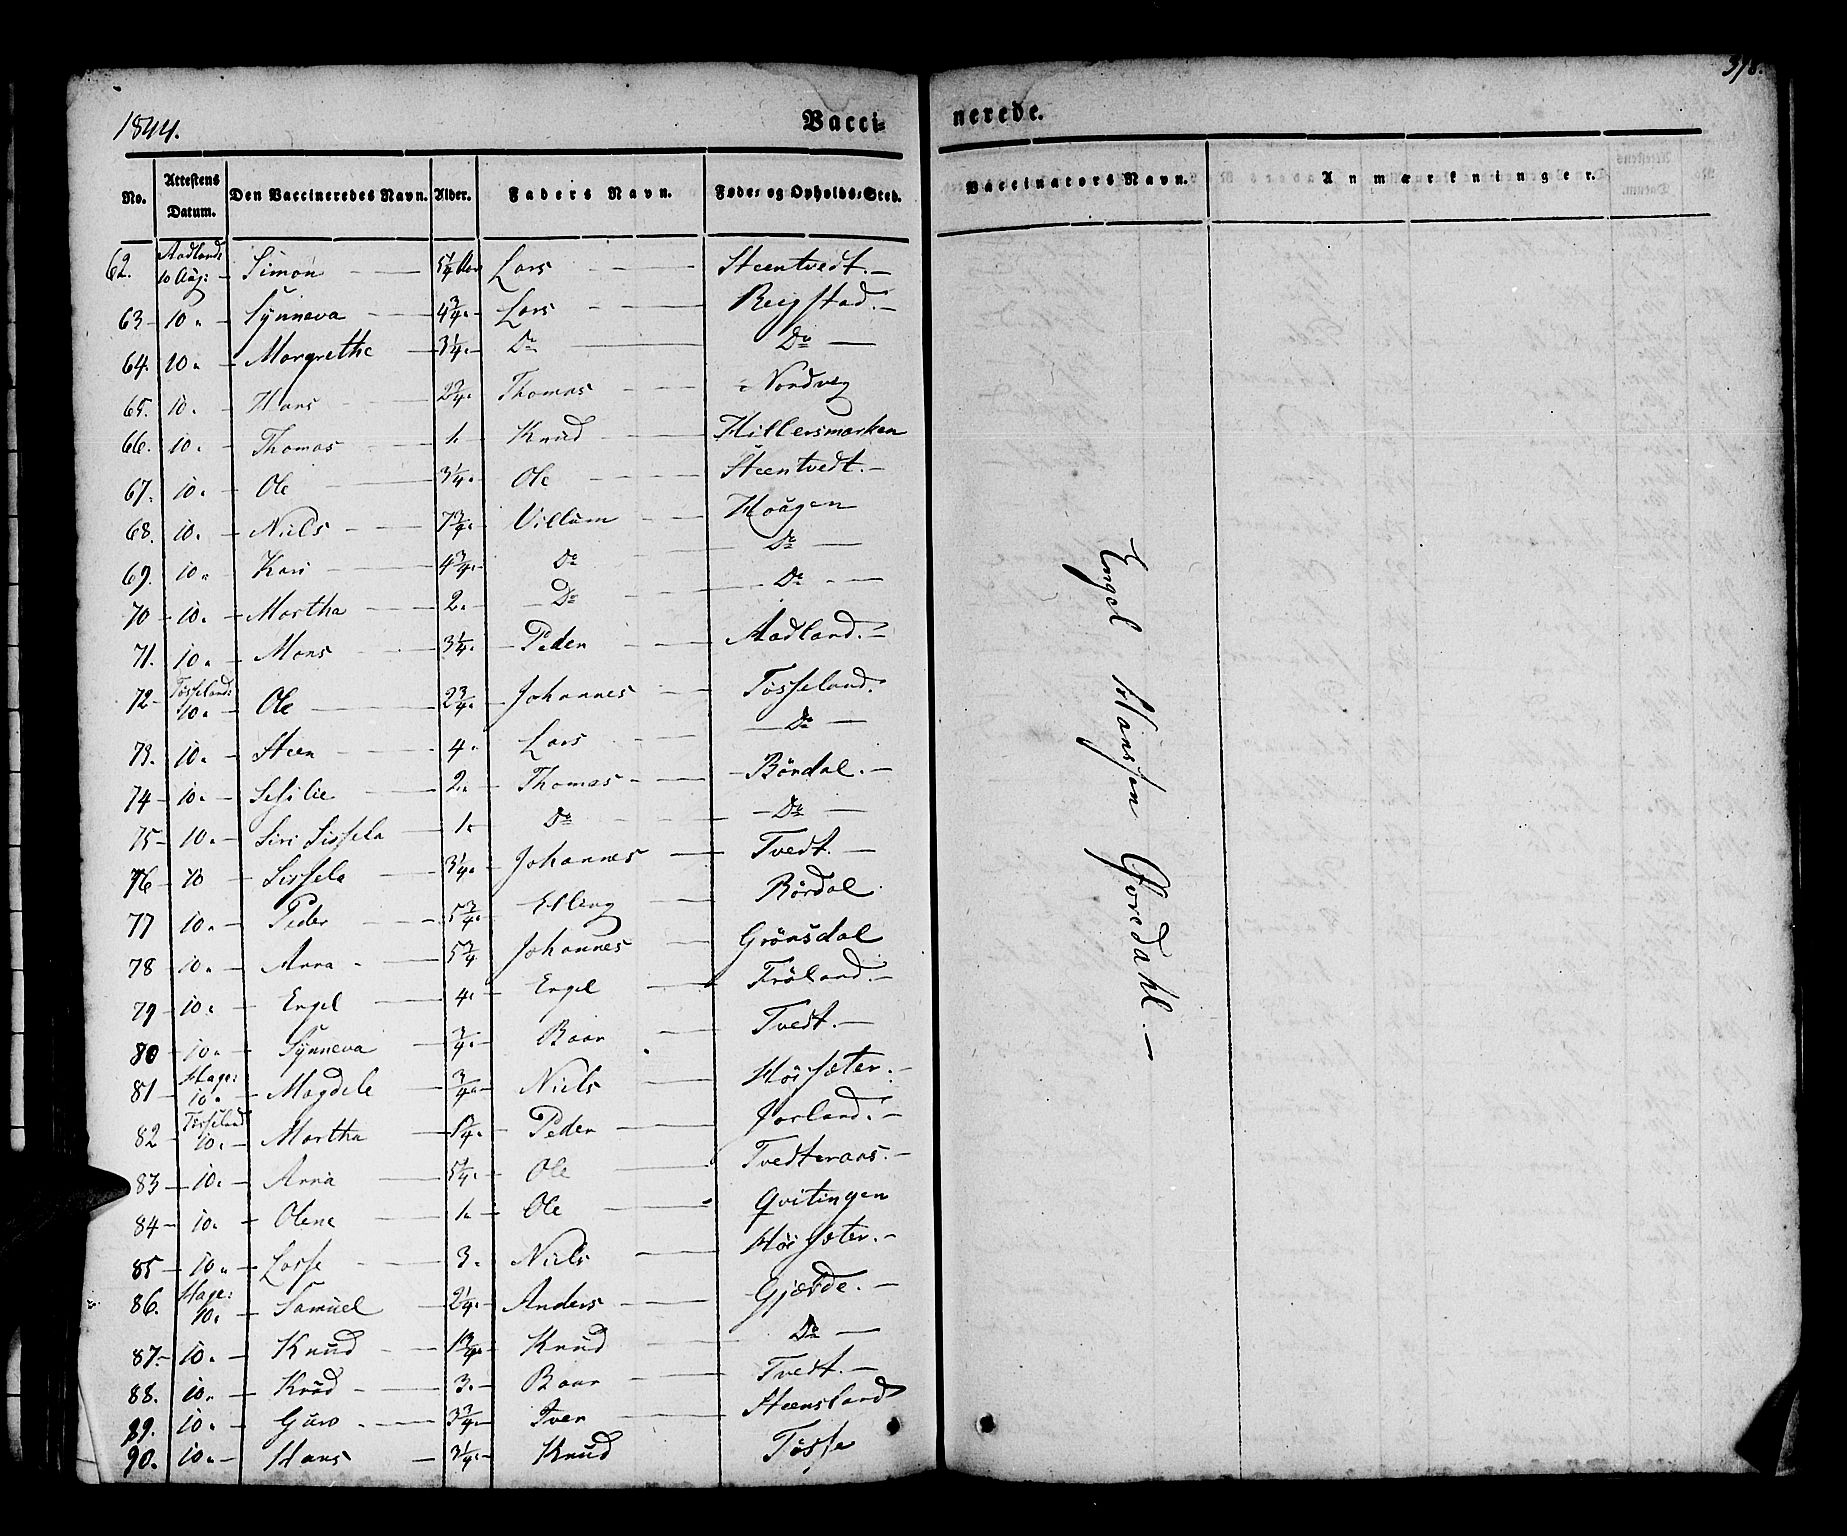 1844. Vacci= nerede. 398.
No. Attestens Datum. Den Vaccineredes Navn. Alder. Faders Navn. Føde- og Opholds-Sted. Vaccinators Navn. Anmærkninger.
62. Aadland: 10 Aug: — Simon — 5/4 Aar Lars — Steentvedt. —
63 — 10 " — Synneva — 4 3/4 " Lars — Bergstad. —
64. 10 " — Margrethe — 3 1/4 " — Do — Do —
65. 10 " — Hans — 2 3/4 " Thomas — Nordveg
66. 10 " — Thomas — 1 " Knud — Hillersmarken
67. 10 " — Ole — 3 1/4 " Ole — Steentvedt. —
68. 10 " — Niels — 7 3/4 " Villum — Haagen
69. 10 " — Kari — 4 3/4 " Do — Do —
70 — 10 " — Martha — 2 " — Do — Do —
71. 10 " — Mons — 3 1/4 " — Peder — Aadland. —
72 — Tösseland: 10 " — Ole — 2 3/4 " — Johannes — Tösseland.
73. 10 " — Steen — 4 " Lars — Do —
74 — 10 " — Sesilie — 2 " Thomas — Bördal. —
75 — 10 " — Siri Sissela — 1 " Do — Do —
76 — 10 — Sissela — 3 1/4 " Johannes — Tvedt. —
77 — 10 " — Peder — 5 3/4 " Elling — Bördal
78 — 10 " — Anna — 5 3/4 Johannes — Grönsdal
79 — 10 " — Engel — 4 " — Engel — Fröland. —
80 — 10 " — Synneva — 3/4 " — Baar — Tvedt. —
81 — Hage: 10 " — Magdele — 3/4 " — Niels — Höisæter. —
82 — Tösseland 10 " — Martha — 5/4 " — Peder — Jorland. —
83 — 10 " — Anna — 5/4 " Ole — Tvedteraas. —
84 — 10 " — Olene — 1 " — Ole — Qvitingen
85 — 10 " — Lasse — 3 " Niels — Höisæter. —
86. Hage: 10 " — Samuel — 2 1/4 " — Anders — Gjærde. —
87. — 10 " — Knud — 1 3/4 " — Knud — Do —
88. 10 " — Knud — 3 " — Baar — Tvedt. —
89. 10 " — Guro — 3 3/4 " — Iver — Steensland
90. 10 " — Hans — 3 1/4 " — Knud — Tösse
Engel Hansson Gjordahl. —